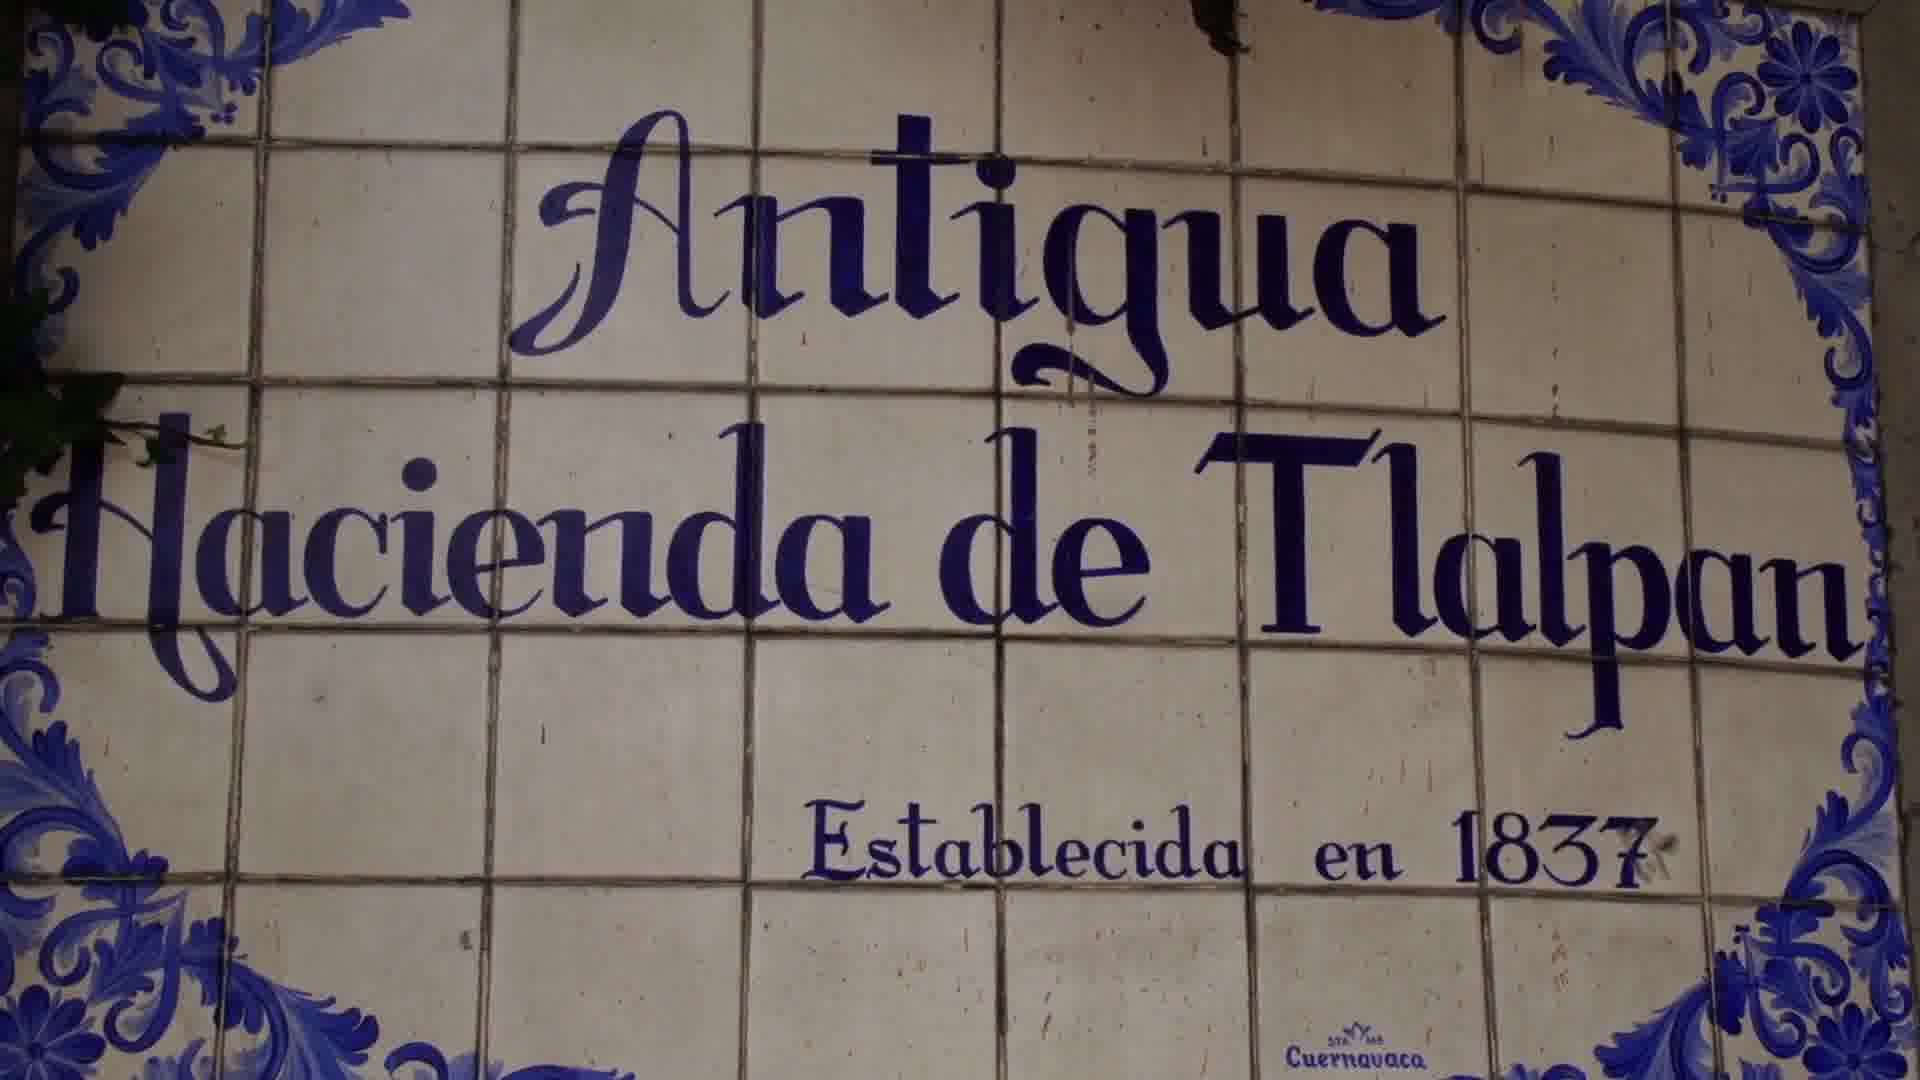 Antigua
Hacienda de Tlalpan
Establecida en 1837
Cuernavaca